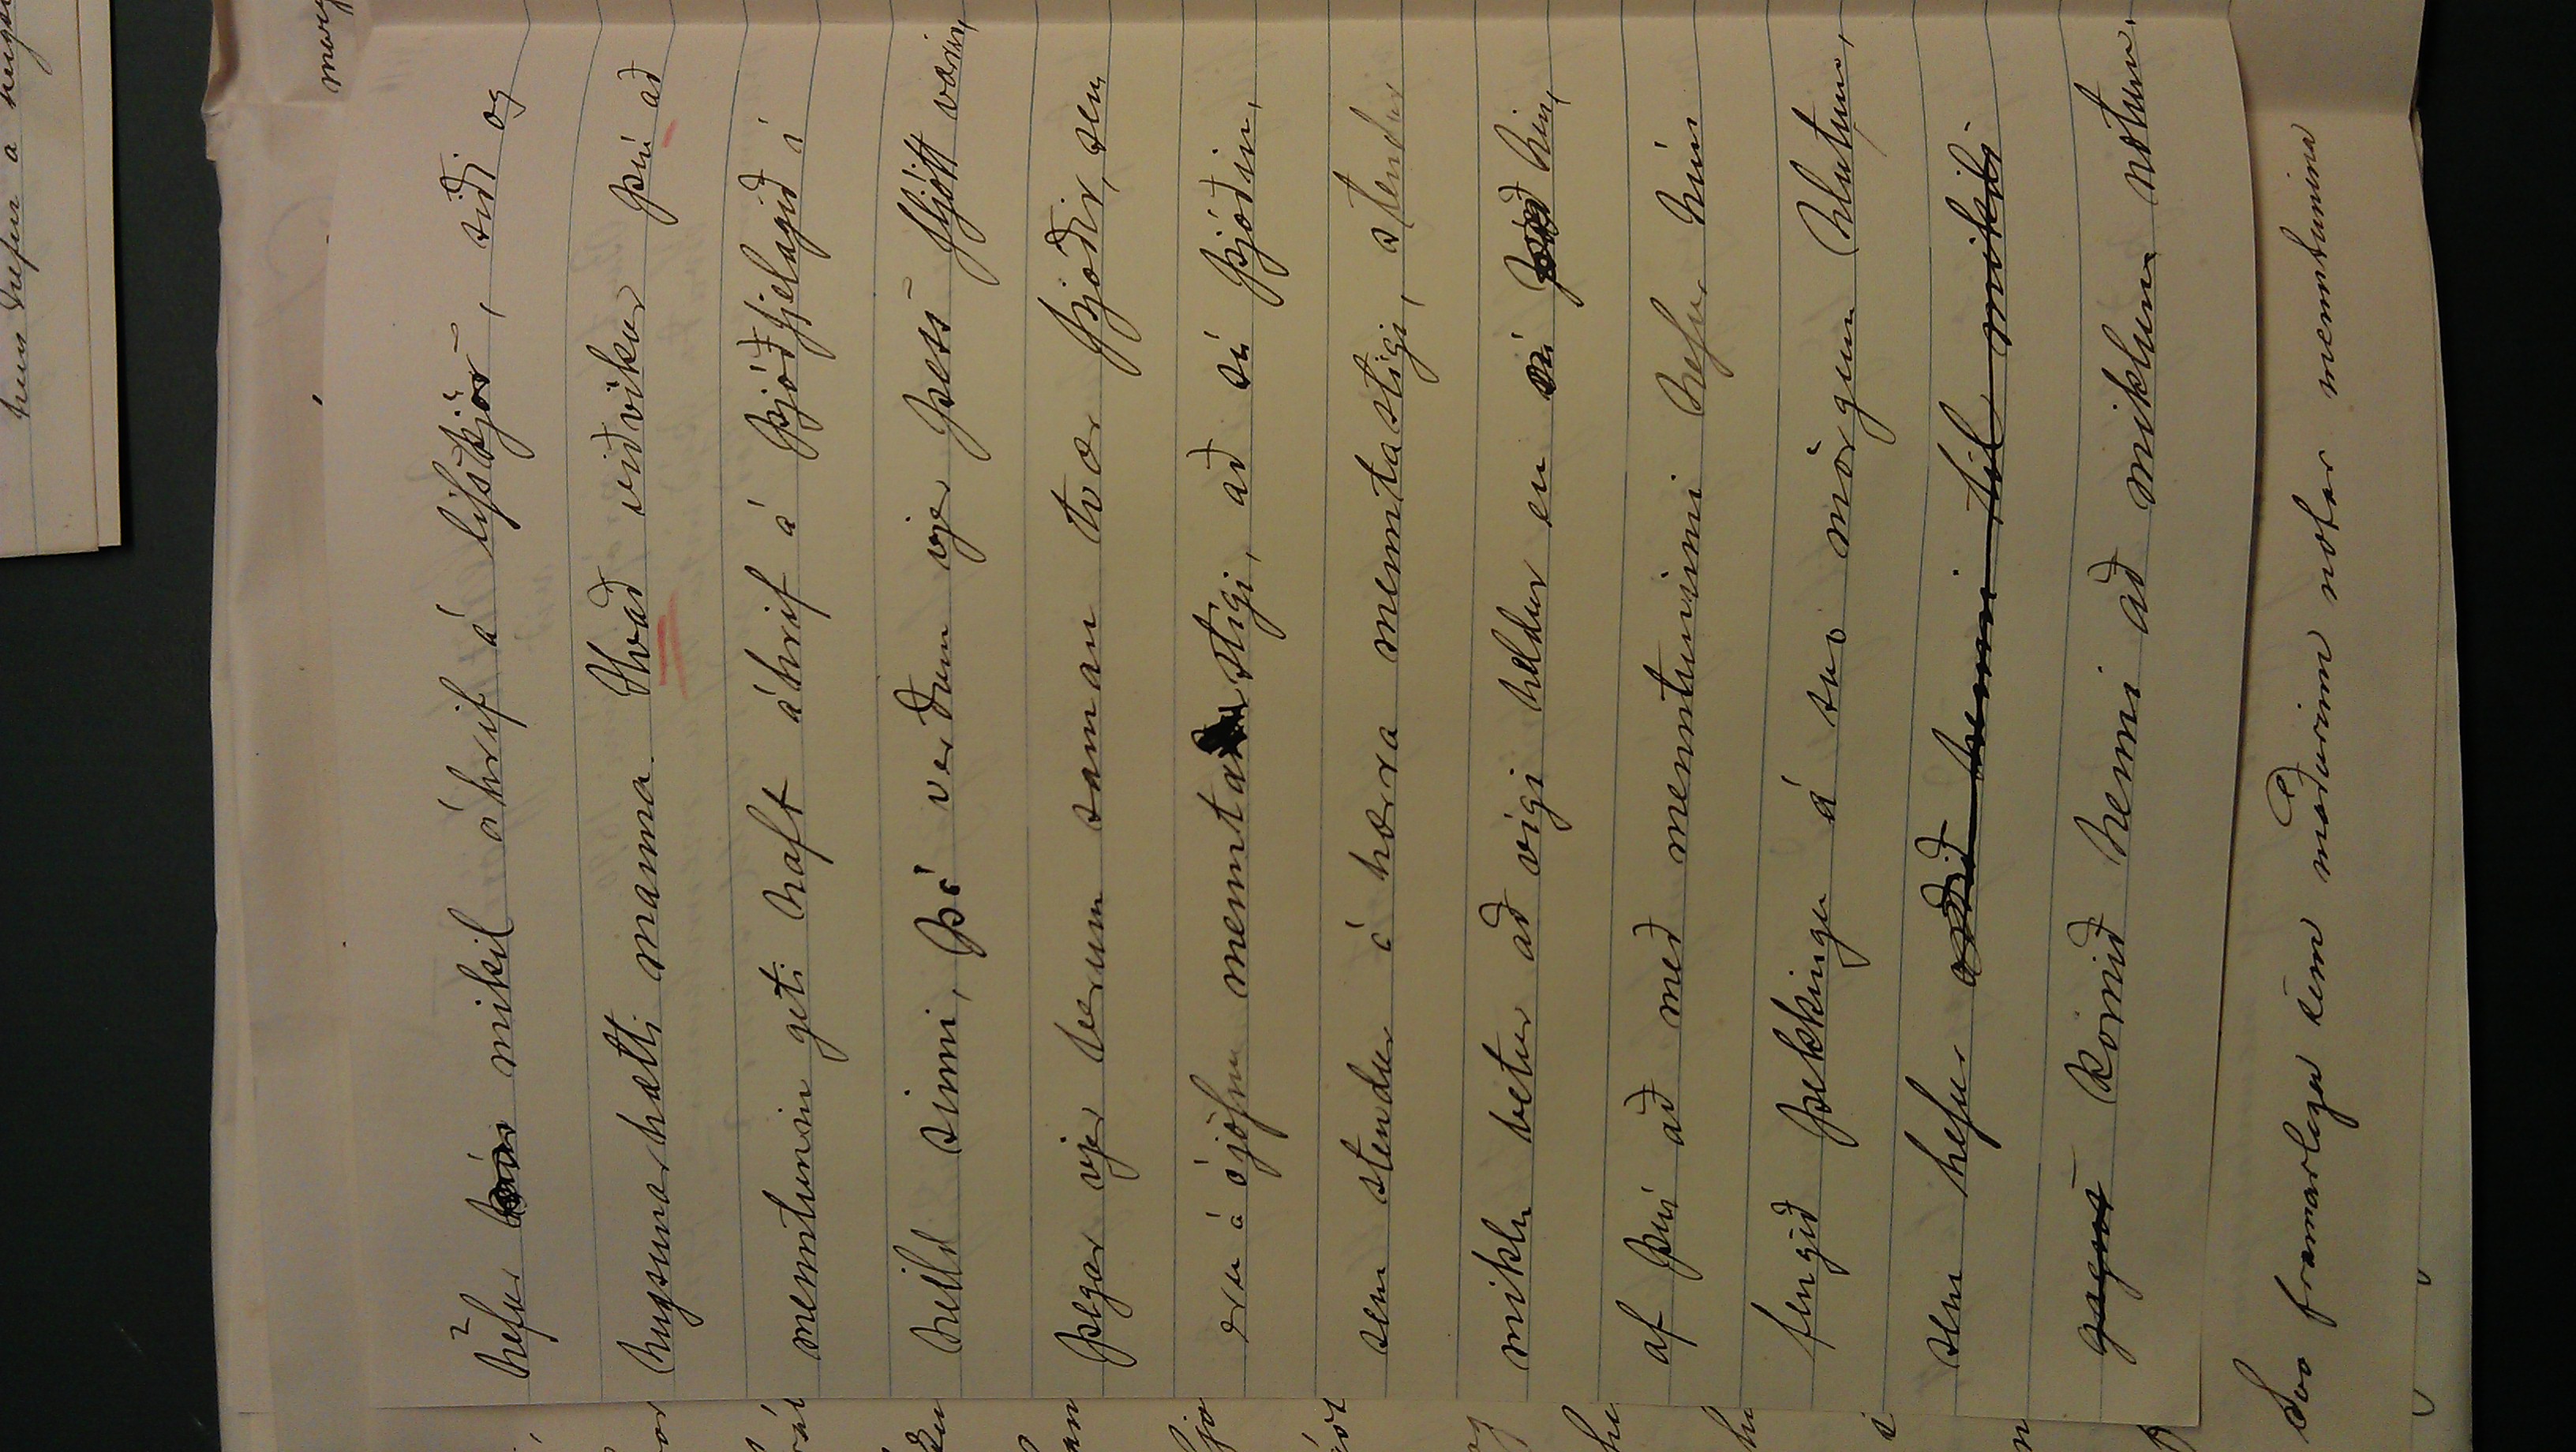 hefur mikil áhrif á lífskjör, siði og
hugsunarhátt manna. Hvað viðvíkur því að
menntunin geti haft áhrif á þjóðfjelagið í
heild sinni, þá verðum vjer þess fljótt varir,
þegar vjer berum saman tvær þjóðir, sem
eru á ójöfnu menntastigi, að sú þjóðin,
sem stendur á hærra menntastigi, stendur
miklu betur að vígi heldur en hin,
af því að með menntuninni hefur hún
fengið þekkingu á svo mörgum hlutum,
sem hefur orðið henni til mikils
gagns komið henni að miklum notum.
Svo framarlega sem maðurinn notar menntunina